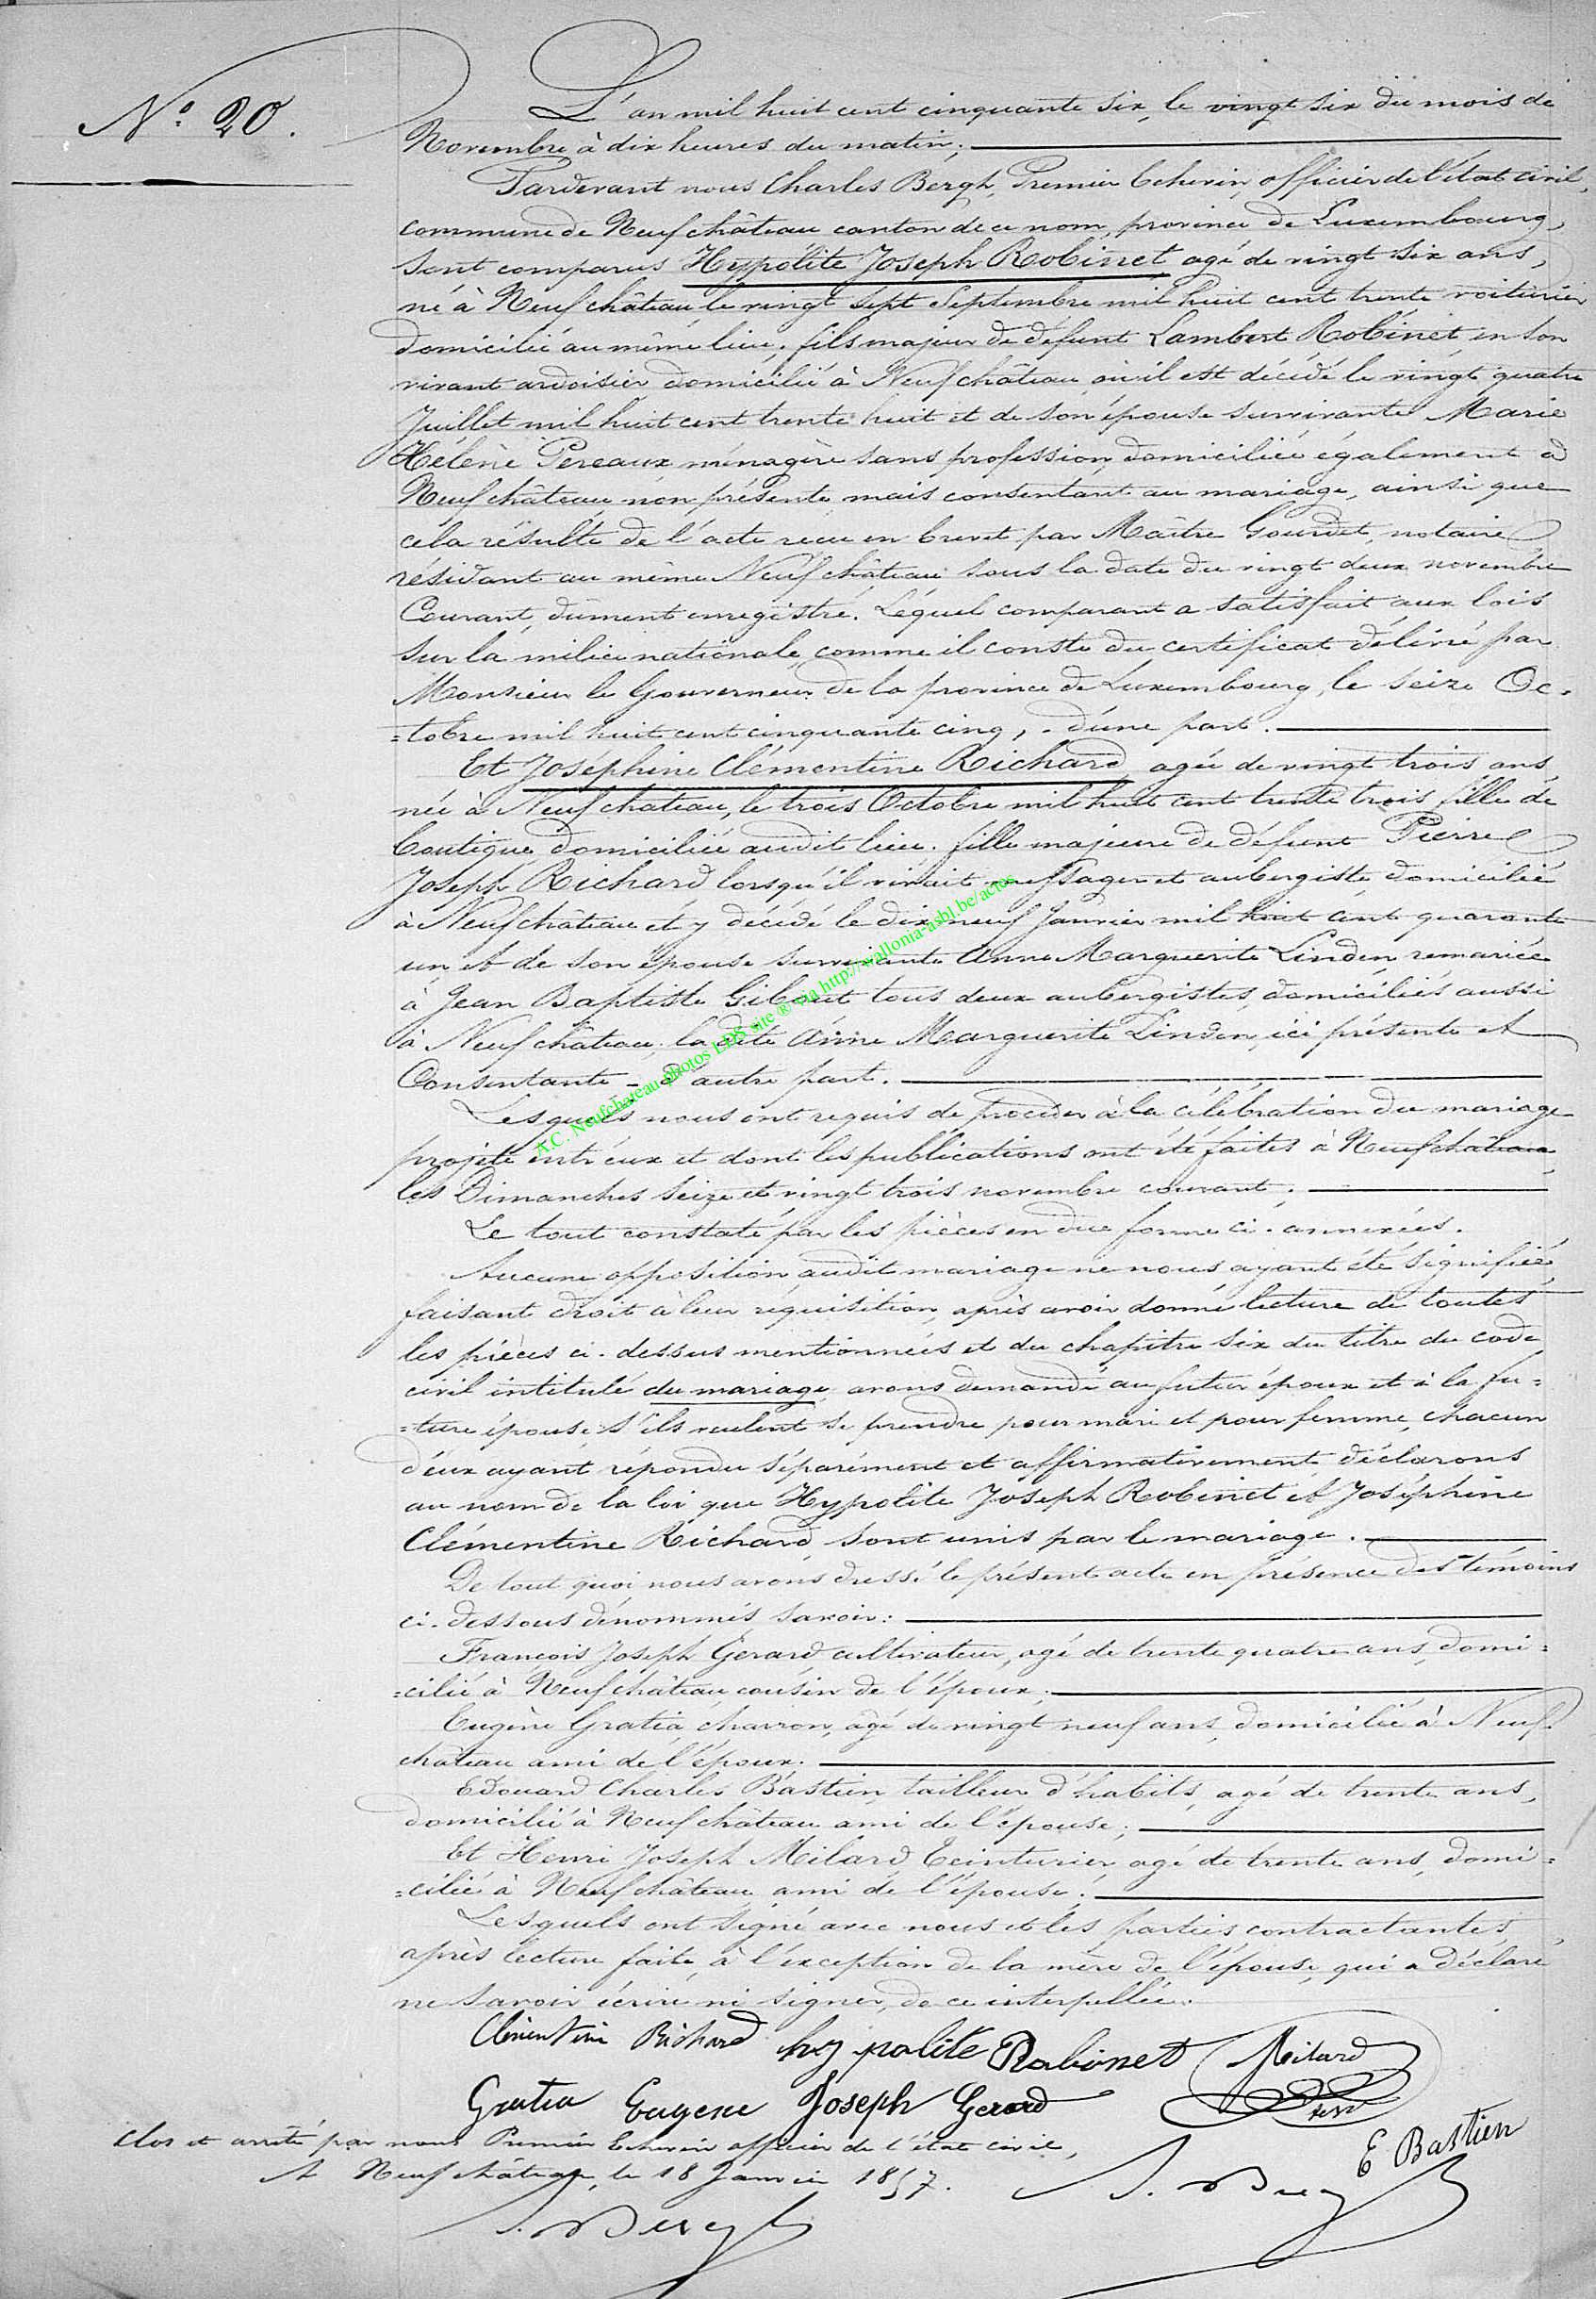 N.° 20.
L'an mil huit cent cinquante six, le vingt six du mois de
Novembre à dix heures du matin;
Pardevant nous Charles Bergh, Premier Echevin, officier de l'état civil,
commune de Neufchâteau canton de ce nom, province de Luxembourg,
sont comparus Hyppolite Joseph Robinet agé de vingt six ans,
né à Neufchâteau le vingt sept Septembre mil huit cent trente, voiturier
domicilié au même lieu; fils majeur de défunt Lambert Robinet, en son
vivant ardoisier domicilié à Neufchâteau, où il est décédé le vingt quatre
Juillet mil huit cent trente huit et de son épouse survivante Marie
Hélène Pereaux ménagère sans profession, domiciliée également à
Neufchâteau non présente, mais consentant au mariage, ainsi que
cela résulte de l'acte recu en brevet par Maître Gourdet, notaire
résidant au même Neufchâteau sous la date du vingt deux novembre
Courant, dûment enregistré. Lequel comparant a satisfait aux lois
sur la milice nationale, comme il conste du certificat délivré par
Monsieur le Gouverneur de la province de Luxembourg, le seize Oc-
=tobre mil huit cent cinquante cinq, - d'une part.
Et Joséphine Clémentine Richard, agée de vingt trois ans
née à Neufchateau, le trois Octobre mil huit cent trente trois, fille de
boutique domiciliée audit lieu. fille majeure de défunt Pierre
Joseph Richard lorsqu'il vivait messager et aubergiste, domicilié
à Neufchâteau et y décédé le dix neuf Janvier mil huit cent quarante
un et de son épouse survivante Anne Marguerite Linden, remariée
à Jean Baptiste Gibout tous deux aubergistes, domiciliés aussi
à Neufchâteau, la dite Anne Marguerite Linden, ici présente et
Consentante - d'autre part.
Lesquels nous ont requis de procéder à la célébration du mariage
projeté entr'eux et dont les publications ont été faites à Neufchâteau
les Dimanches seize et vingt trois novembre courant;
Le tout constaté par les pièces en due forme ci-annexées.
Aucune opposition audit mariage ne nous ayant été signifiée,
faisant droit à leur réquisition, après avoir donné lecture de toutes
les pièces ci-dessus mentionnées et du chapitre six du titre du code
civil intitulé du mariage, avons demandé au futur époux et à la fu=
=ture épouse s'ils veulent se prendre pour mari et pour femme, chacun
d'eux ayant répondu séparément et affirmativement, déclarons
au nom de la loi que Hyppolite Joseph Robinet et Joséphine
Clémentine Richard, sont unis par le mariage.
De tout quoi nous avons dressé le présent acte en présence des témoins
ci-dessous dénommés, savoir:
François Joseph Gerard, cultivateur, agé de trente quatre ans, domi=
=cilié à Neufchâteau, cousin de l'époux;
Eugène Gratia, charron, agé de vingt neuf ans, domicilié à Neuf-
château ami de l'époux.
Edouard Charles Bastien, tailleur d'habits, agé de trente ans,
domicilié à Neufchâteau ami de l'épouse;
Et Henri Joseph Milard Teinturier, agé de trente ans, domi=
=cilié à Neufchâteau ami de l'épouse.
Lesquels ont signé avec nous et les parties contractantes,
après lecture faite, à l'exception de la mère de l'épouse, qui a déclaré
ne savoir écrire ni signer, de ce interpellée.
Clémentine Richard hyppolite Robinet Milard
Gratia Eugene Joseph Gerard
E Bastien
Clos et arrêté par nous Premier Echevin officier de l'état civil,
A Neufchâteau, le 18 Janvier 1857.
A.C. Neufchateau photos LDS site ® via http://wallonia-asbl.be/actes